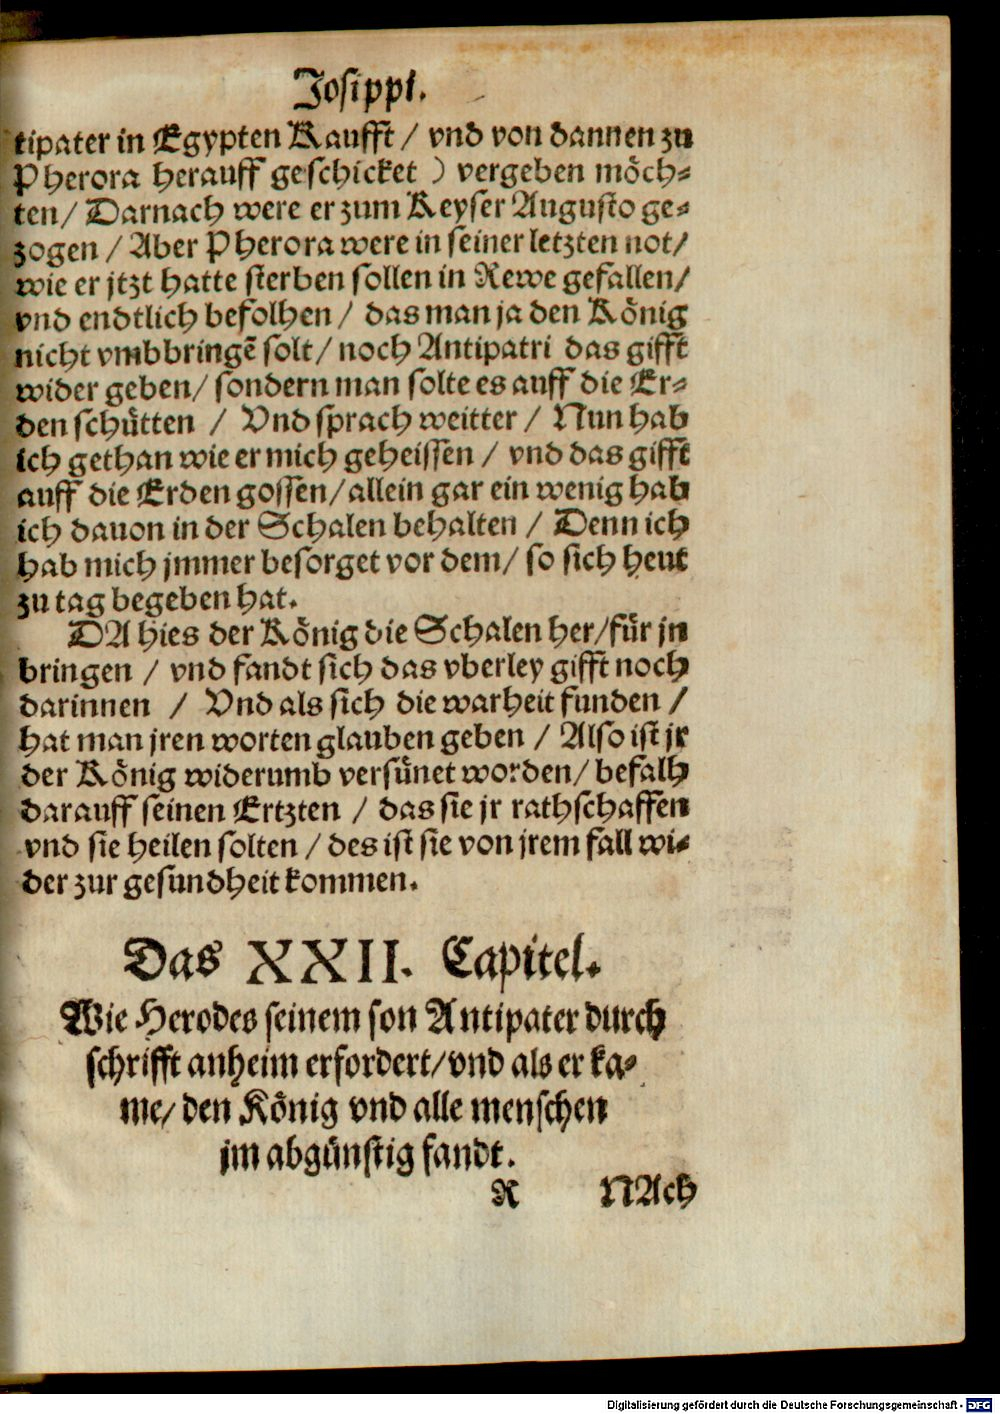 Josippi.
tipater in Egypten Kaufft / vnd von dannen zu
Pherora herauff geschicket ) vergeben möch⸗
ten / Darnach were er zum Keyser Augusto ge⸗
zogen / Aber Pherora were in seiner letzten not /
wie er jtzt hatte sterben sollen in Rewe gefallen /
vnd endtlich befolhen / das man ja den König
nicht vmbbringē solt / noch Antipatri das gifft
wider geben / sondern man solte es auff die Er⸗
den schütten / Vnd sprach weitter / Nun hab
ich gethan wie er mich geheissen / vnd das gifft
auff die Erden gossen / allein gar ein wenig hab
ich dauon in der Schalen behalten / Denn ich
hab mich jmmer besorget vor dem / so sich heut
zu tag begeben hat.
DA hies der König die Schalen her / für jn
bringen / vnd fandt sich das vberley gifft noch
darinnen / Vnd als sich die warheit funden /
hat man jren worten glauben geben / Also ist jr
der König widerumb versünet worden / befalh
darauff seinen Ertzten / das sie jr rathschaffen
vnd sie heilen solten / des ist sie von jrem fall wi⸗
der zur gesundheit kommen.
Das XXII. Capitel.
Wie Herodes seinem son Antipater durch
schrifft anheim erfordert / vnd als er ka⸗
me / den König vnd alle menschen
jm abgünstig fandt.
R NAch
Digitalisierung gefördert durch die Deutsche Forschungsgemeinschaft - DFG